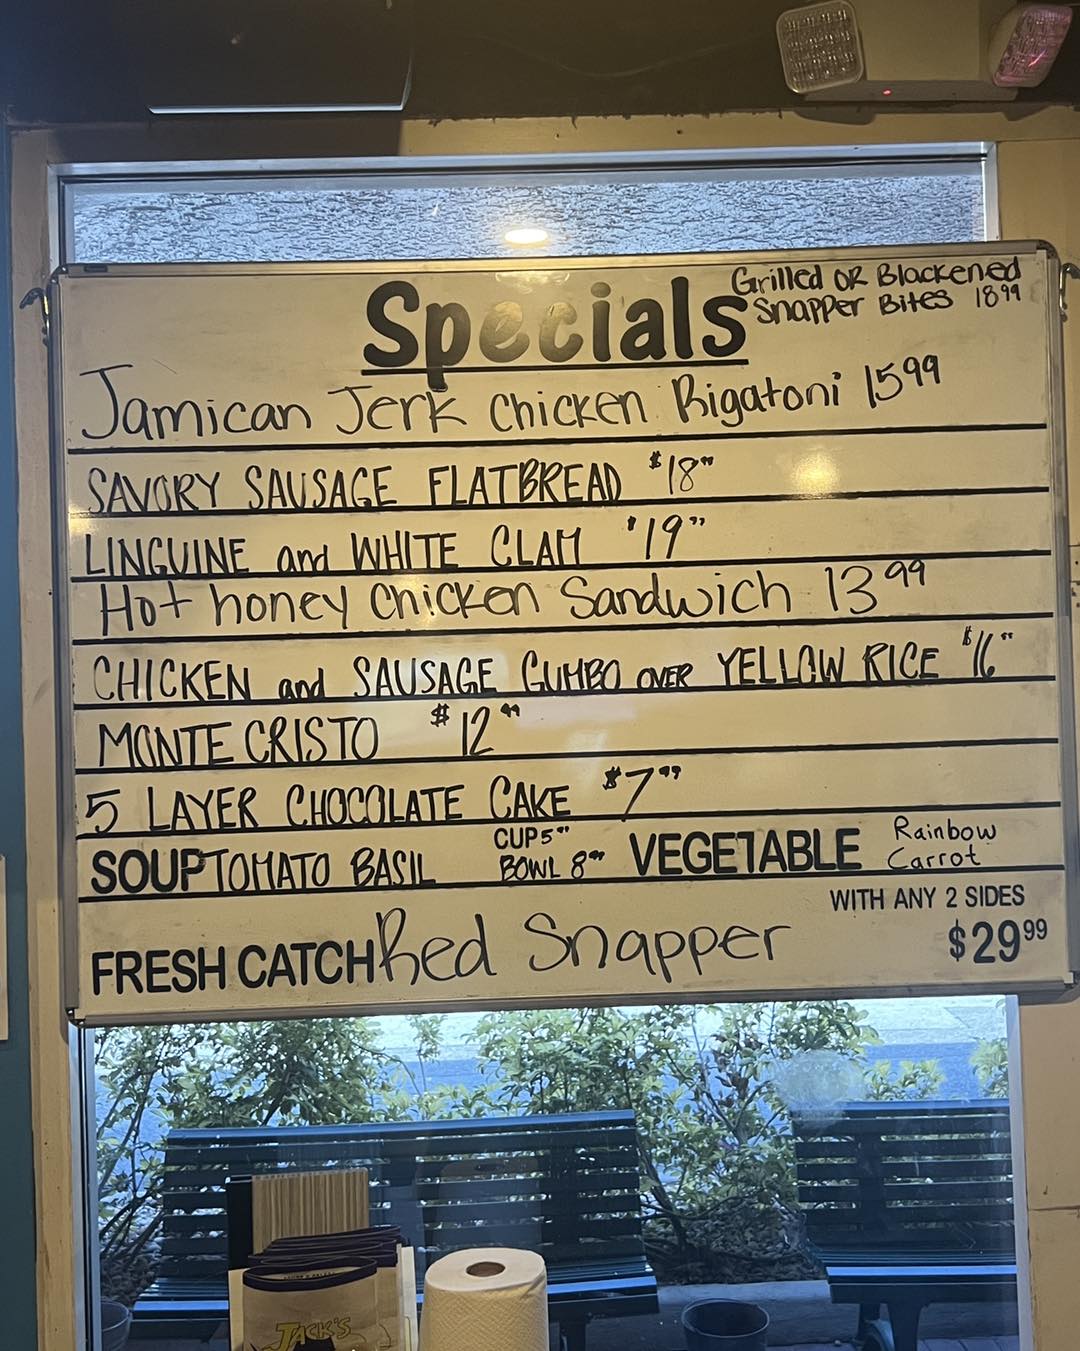 Specials
Grilled OR Blackened
Snapper Bites 18 99
Jamican Jerk Chicken Rigatoni 15 99
SAVORY SAUSAGE FLATBREAD $18 99
LINGUINE and WHITE CLAM $19 99
Hot honey Chicken Sandwich 13 99
CHICKEN and SAUSAGE GUMBO OVER YELLOW RICE $16 99
MONTE CRISTO $12 99
5 LAYER CHOCOLATE CAKE $7 99
SOUP TOMATO BASIL
CUP 5 99
BOWL 8 99
VEGETABLE
Rainbow
Carrot
WITH ANY 2 SIDES
FRESH CATCH Red Snapper $29 99
JACK'S